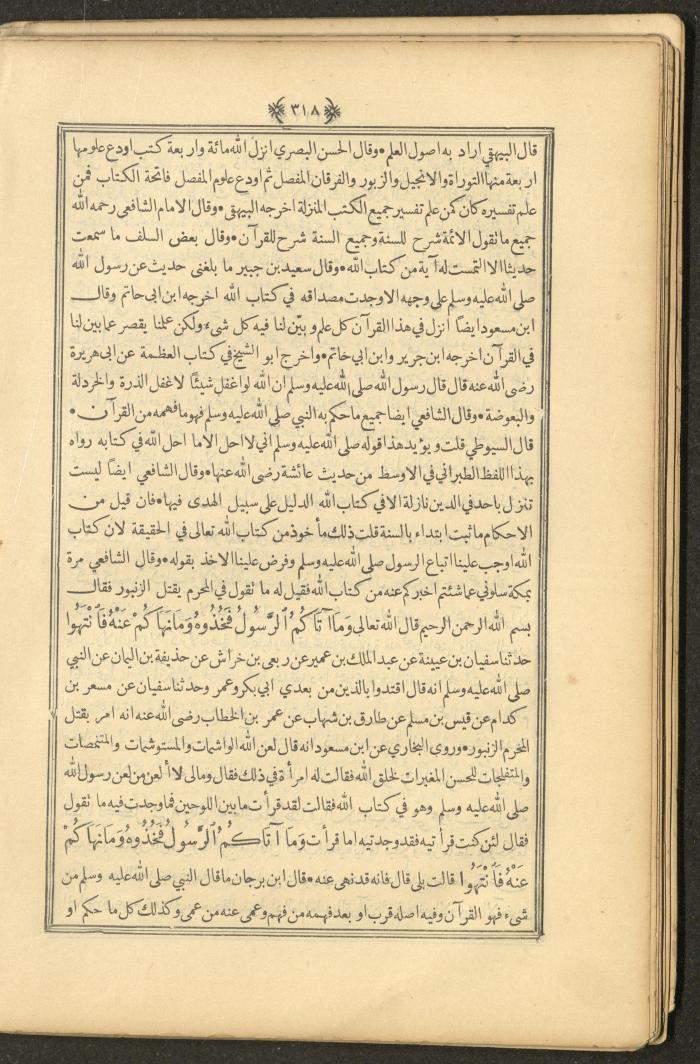 ﴿٣١٨﴾
قال البيهقي اراد به اصول العلم • وقال الحسن البصري انزل الله مائة واربعة كتب اودع علومها
اربعة منها التوراة والانجيل والزبور والفرقان المفصل ثم اودع علوم المفصل فاتحة الكتاب فمن
علم تفسيره كان كمن علم تفسير جميع الكتب المنزلة اخرجه البيهقي • وقال الامام الشافعي رحمه الله
جميع ما تقول الائمة شرح للسنة وجميع السنة شرح للقرآن • وقال بعض السلف ما سمعت
حديثا الا التمست له آية من كتاب الله • وقال سعيد بن جبير ما بلغني حديث عن رسول الله
صلى الله عليه وسلم على وجهه الا وجدت مصداقه في كتاب الله اخرجه ابن ابي حاتم وقال
ابن مسعود ايضاً انزل في هذا القرآن كل علم وبيّن لنا فيه كل شيء ولكن علمنا يقصر عما بين لنا
في القرآن اخرجه ابن جرير وابن ابي خاتم • واخرج ابو الشيخ في كتاب العظمة عن ابي هريرة
رضى الله عنه قال قال رسول الله صلى الله عليه وسلم ان الله لو اغفل شيئًا لاغفل الذرة والخردلة
والبعوضة • وقال الشافعي ايضا جميع ما حكم به النبي صلى الله عليه وسلم فهو ما فهمه من القرآن •
قال السيوطي قلت ويؤيد هذا قوله صلى الله عليه وسلم اني لا احل الا ما احل الله في كتابه رواه
بهذا اللفظ الطبراني في الاوسط من حديث عائشة رضى الله عنها • وقال الشافعي ايضاً ليست
تنزل باحد في الدين نازلة الا في كتاب الله الدليل على سبيل الهدى فيها • فان قيل من
الاحكام ما ثبت ابتداء بالسنة قلت ذلك مأخوذ من كتاب الله تعالى في الحقيقة لان كتاب
الله اوجب علينا اتباع الرسول صلى الله عليه وسلم وفرض علينا الاخذ بقوله • وقال الشافعي مرة
بمكة سلوني عما شئتم اخبركم عنه من كتاب الله فقيل له ما تقول في المحرم يقتل الزنبور فقال
بسم الله الرحمن الرحيم قال الله تعالى وَمَا آتَاكُمُ ٱلرَّسُولُ فَخُذُوهُ وَمَا نَهَاكُمْ عَنْهُ فَٱنْتَهُوا
حدثنا سفيان بن عيينة عن عبد الملك بن عمير عن ربعي بن خراش عن حذيفة بن اليمان عن النبي
صلى الله عليه وسلم انه قال اقتدوا بالذين من بعدي ابي بكر وعمر وحدثنا سفيان عن مسعر بن
كدام عن قيس بن مسلم عن طارق بن شهاب عن عمر بن الخطاب رضى الله عنه انه امر بقتل
المحرم الزنبور • وروى البخاري عن ابن مسعود انه قال لعن الله الواشمات والمستوشمات والمتنمصات
والمتفلجات للحسن المغيرات لخلق الله فقالت له امرأة في ذلك فقال ومالى لا ألعن من لعن رسول الله
صلى الله عليه وسلم وهو في كتاب الله فقالت لقد قرأت ما بين اللوحين فما وجدت فيه ما تقول
فقال لئن كنت قرأتيه فقد وجدتيه اما قرأت وَمَا آتَاكُمُ ٱلرَّسُولُ فَخُذُوهُ وَمَا نَهَاكُمْ
عَنْهُ فَٱنْتَهُوا قالت بلى قال فانه قد نهى عنه • قال ابن برجان ما قال النبي صلى الله عليه وسلم من
شيء فهو القرآن وفيه اصله قرب او بعد فهمه من فهم وعمى عنه من عمى وكذلك كل ما حكم او